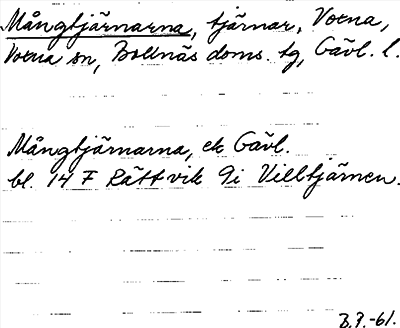 Mångtjärnarna, tjärnar, Voxna,
Voxna sn, Bollnäs doms. tg, Gävl. l.
Mångtjärnarna, ek Gävl.
bl. 14 F Rättvik 9i Villtjärnen.
B.P.-61.